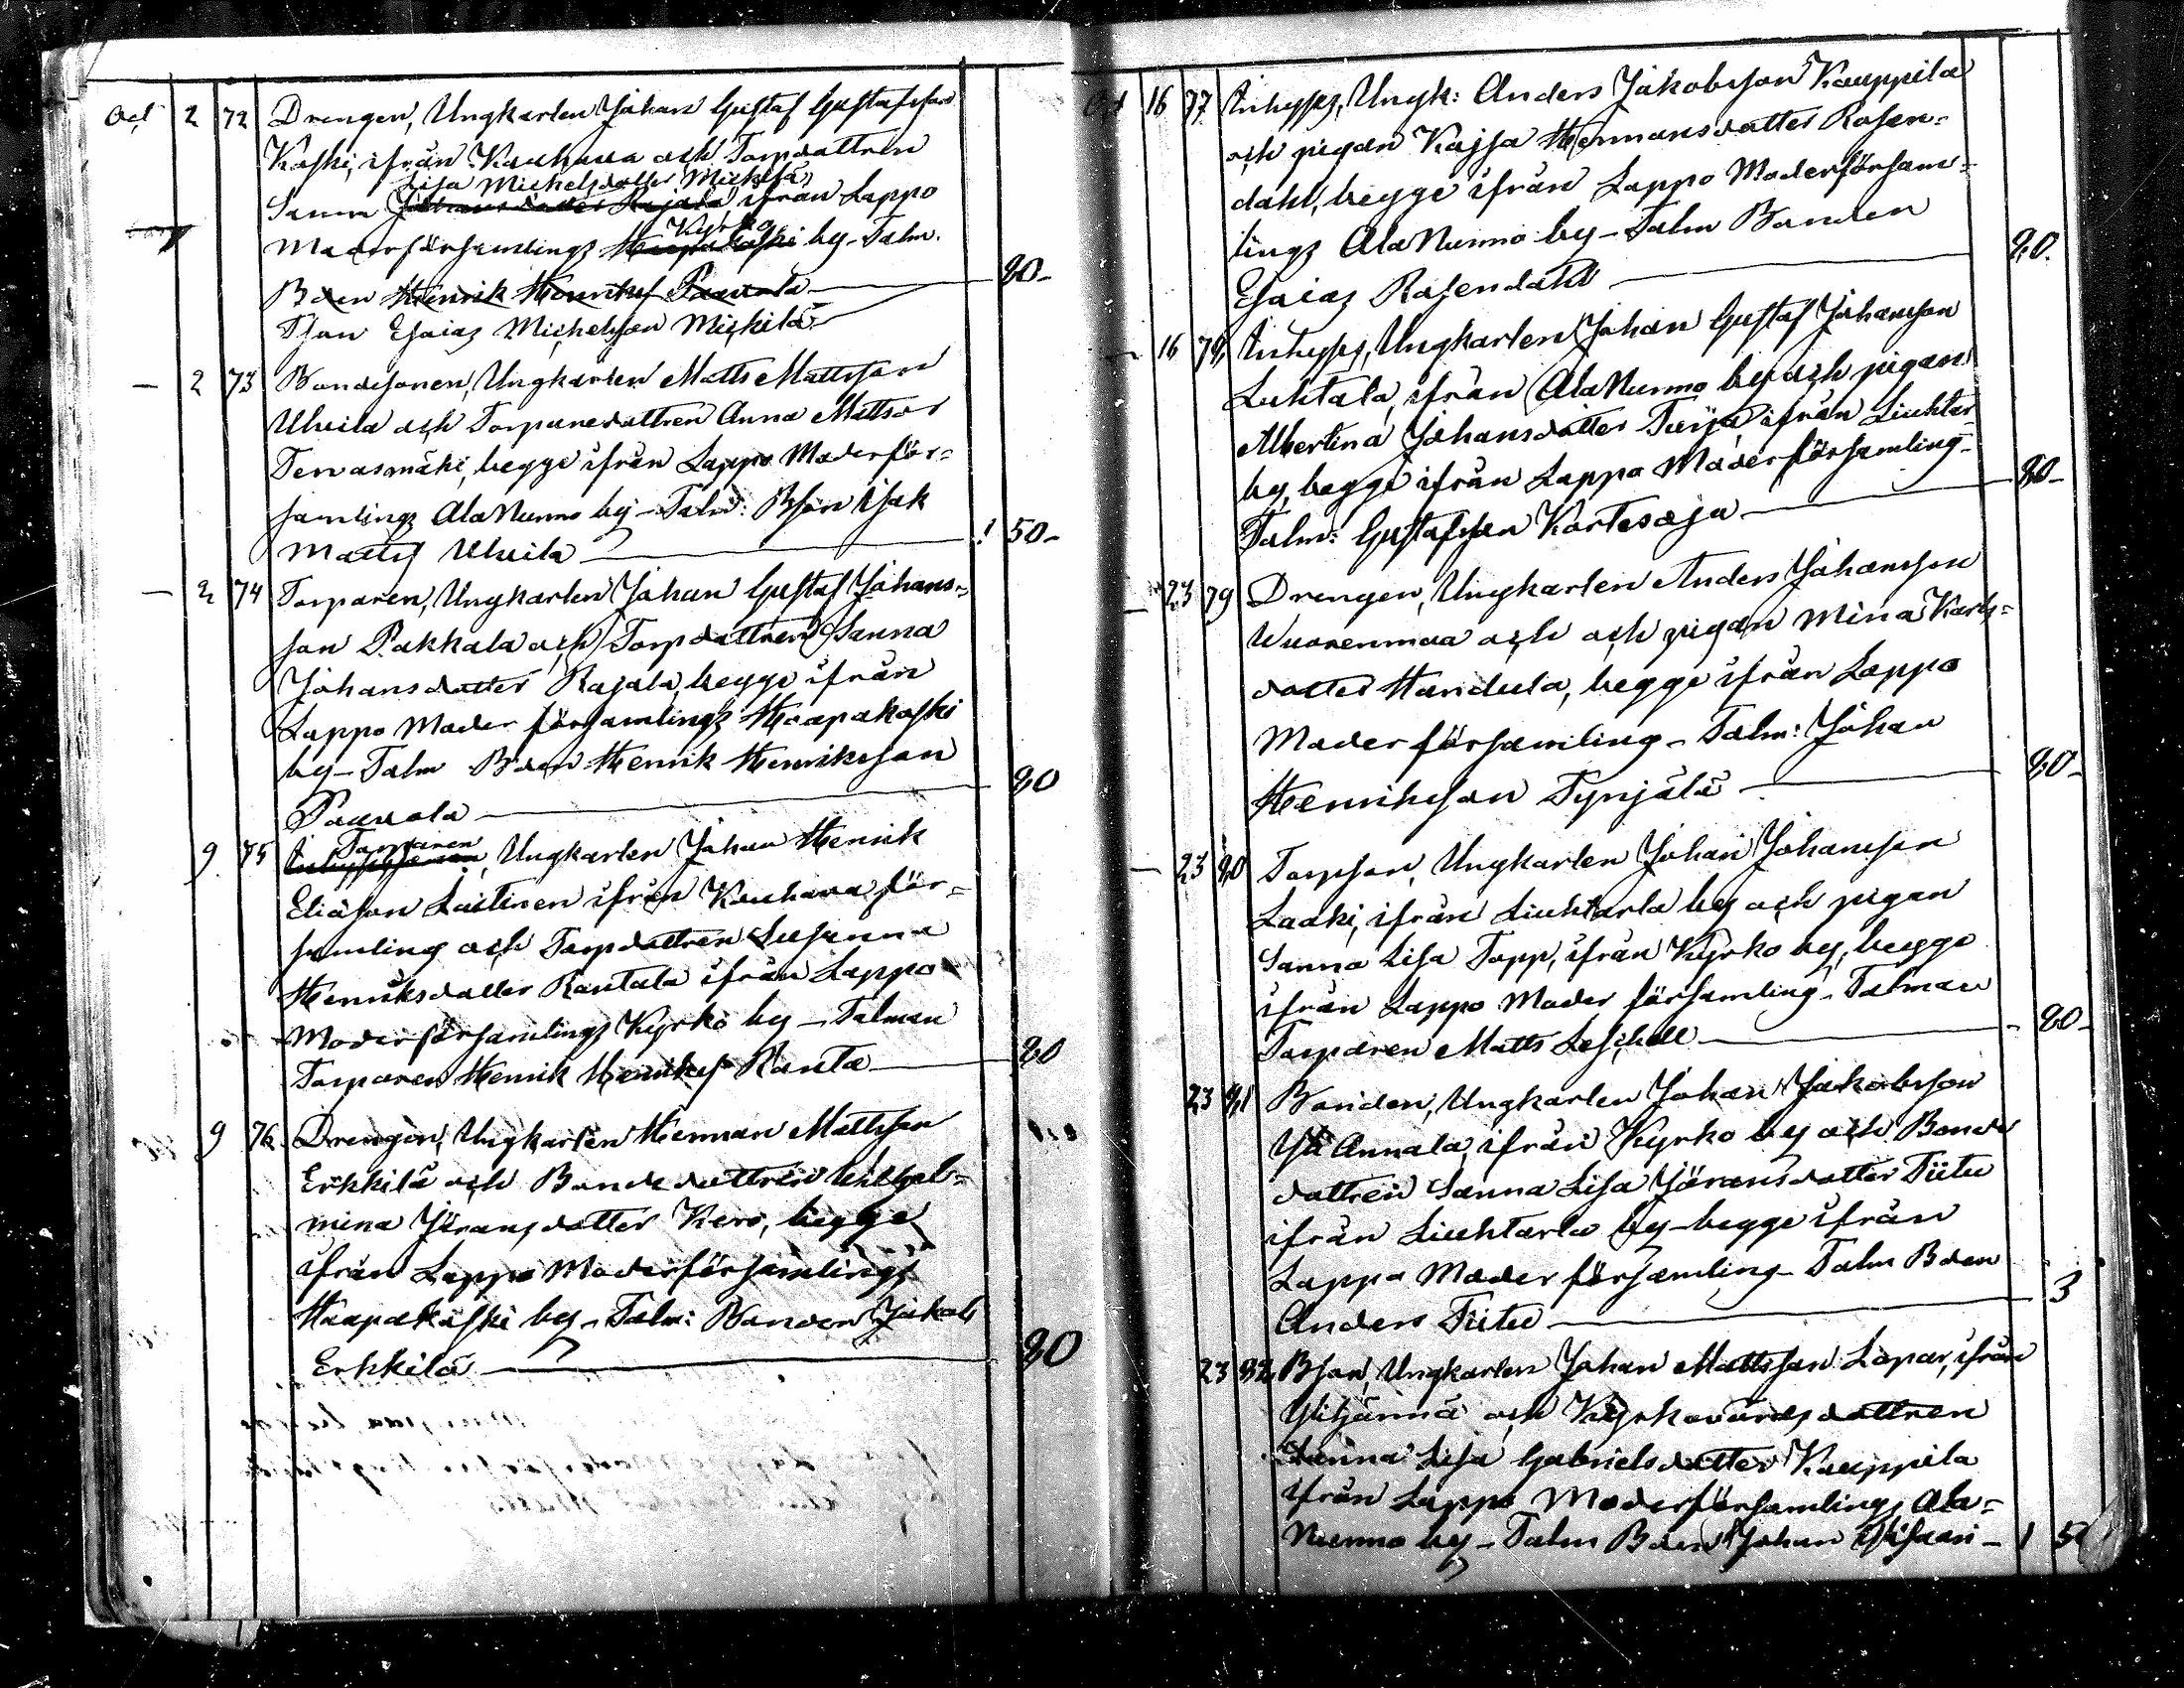 Oct 2 72 Drengen, Ungkarlen Johan Gustaf Gustafsson
Koski, ifrån Kauhava och Torpdattren
Lisa Michelsdotter Mickilä
Sanna Johansdotter Rajala ifrån Lappo
Kyrko
Moderförsamlings Haapakoski by - Talm.
Bden Henrik Henriks Pauvola — 80-
Tson Esaias Michelsson Mickilä
— 2 73 Bondesonen, Ungkarlen Matts Mattsson
Uhvila och Torparedottren Anna Mattsdr
Tervasmäki, begge ifrån Lappo Moderför=
samlings Ala Nurmo by - Talm: Bson Isak
Matts Uhvila — 1 50-
— 2 74 Torparen, Ungkarlen Johan Gustaf Johans=
son Pakkala och Torpdottren Sanna
Johansdotter Rajala, begge ifrån
Lappo Moder församlings Haapakoski
by - Talm Bden Henrik Henriksson
Pauvola — 80
Torparen
9 75 Ungkarlen Johan Henrik
Eliasson Laitinen ifrån Kauhava för=
samling och Torpdottren Susanna
Henriksdotter Rantala ifrån Lappo
Moderförsamlings Kyrko by - Talman
Torparen Henrik Henriks Ranta — 80
9 76 Drengen, Ungkarlen Herman Mattsson
Erkkilä och Bondedottren Wilhel=
mina Jöransdotter Kero, begge
ifrån Lappo Moderförsamlings
Haapakoski by - Talm: Bonden Jakob
Erkkilä — 80
Oct 16 77 Inhyses, Ungk: Anders Jakobsson Kauppila
och pigan Kajsa Hermansdotter Rosen=
dahl, begge ifrån Lappo Moderförsam=
lings Ala Nurmo by - Talm Bonden
Esaias Rosendahl — 80.
— 16 78 Inhyses, Ungkarlen Johan Gustaf Johansson
Luhtala, ifrån Ala Nurmo by och pigan
Albertina Johansdotter Turja ifrån Liuhtar
by, begge ifrån Lappo Moderförsamling -
Talm: Gustafsson Kortesoja — 80-
— 23 79 Drengen, Ungkarlen Anders Johansson
Wuorenmaa och och pigan Mina Karls=
dotter Handula, begge ifrån Lappo
Moder församling - Talm: Johan
Henriksson Tynjälä — 80-
— 23 80 Torpson, Ungkarlen Johan Johansson
Laaki, ifrån Liuhtarla by och pigan
Sanna Lisa Topp, ifrån Kyrko by, begge
ifrån Lappo Moder församling - Talman
Torparen Matts — 80-
23 81 Bonden, Ungkarlen Johan Jakobsson
Yli Annala, ifrån Kyrko by och Bonde
dottren Sanna Lisa Jöransdotter Tiitu
ifrån Liuhtarla by - begge ifrån
Lappo Moder församling - Talm Bden
Anders Tiitu — 3
23 82 Bson, Ungkarlen Johan Mattsson Lapar, ifrån
och Kyrkovärdsdottren
Sanna Lisa Gabrielsdotter Kauppila
ifrån Lappo Moderförsamlings Ala=
Nurmo by - Talm Bden Johan - 1 50